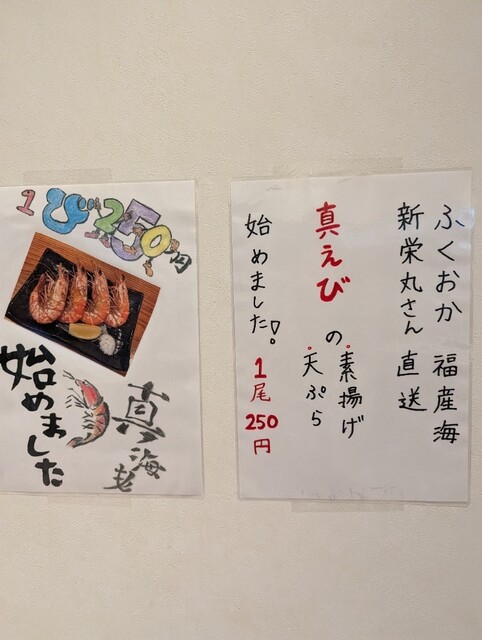 1び250円
始めました
真海老
ふくおか 福産海
新栄丸さん 直送
真えびの
・素揚げ
・天ぷら
始めました! 1尾250円